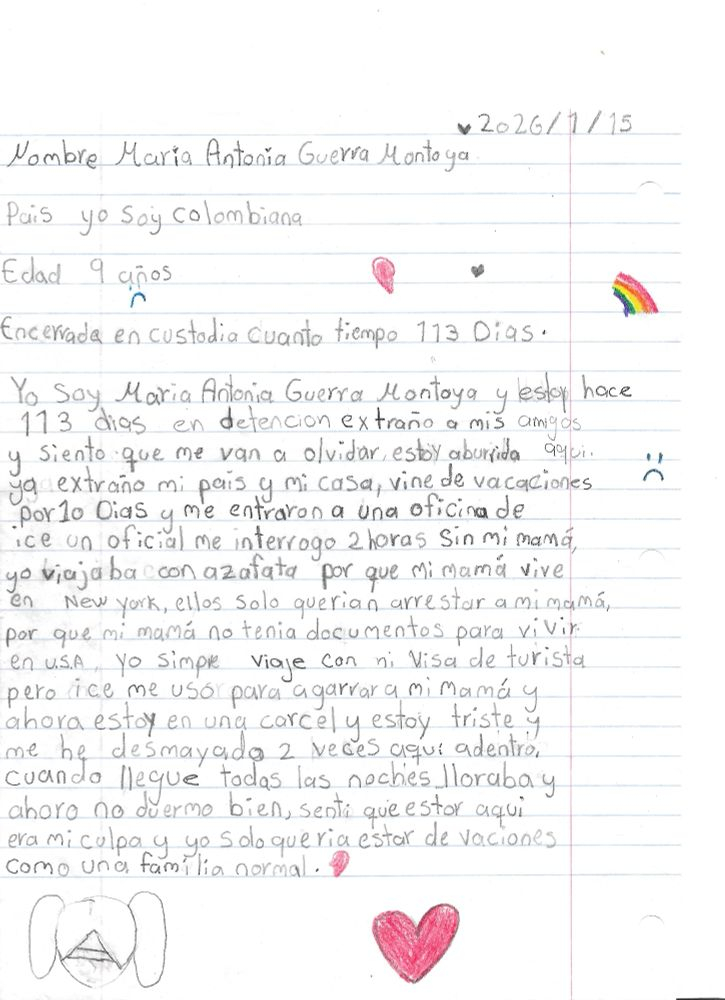 2026/1/15
Nombre Maria Antonia Guerra Montoya
Pais yo soy colombiana
Edad 9 años
Encerrada en custodia cuanto tiempo 113 Dias.
Yo Soy Maria Antonia Guerra Montoya y estoy hace
113 dias en detencion extraño a mis amigos
y siento que me van a olvidar, estoy aburrida aqui.
ya extraño mi pais y mi casa, vine de vacaciones
por 10 Dias y me entraron a una oficina de
ice un oficial me interrogo 2 horas Sin mi mamá,
yo viajaba con azafata por que mi mamá vive
en New york, ellos solo querian arrestar a mi mamá,
por que mi mamá no tenia documentos para vivir
en U.S.A, Yo simpre viaje con mi Visa de turista
pero ice me usó para agarrar a mi mamá y
ahora estoy en una carcel y estoy triste y
me he desmayado 2 veces aqui adentro,
cuando llegue todas las noches lloraba y
ahora no duermo bien, senti que estar aqui
era mi culpa y yo solo queria estar de vaciones
como una familia normal.